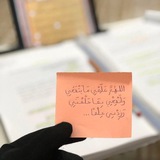 اللهُمَّ علِّمْني مَا يَنْفَعُني
وَانْفَعْني بِمَا عَلَّمْتَني
وَزِدْنِي عِلْمًا...